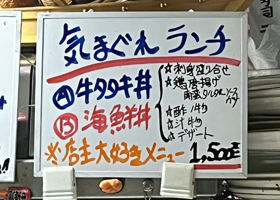 気まぐれランチ
Ⓐ牛タタキ丼
Ⓑ海鮮丼
☆刺身盛り合せ
☆鶏唐揚げ
南蛮タルタルソース
☆酢ノ物
☆汁物
☆デザート
※店主大好きメニュー 1,500